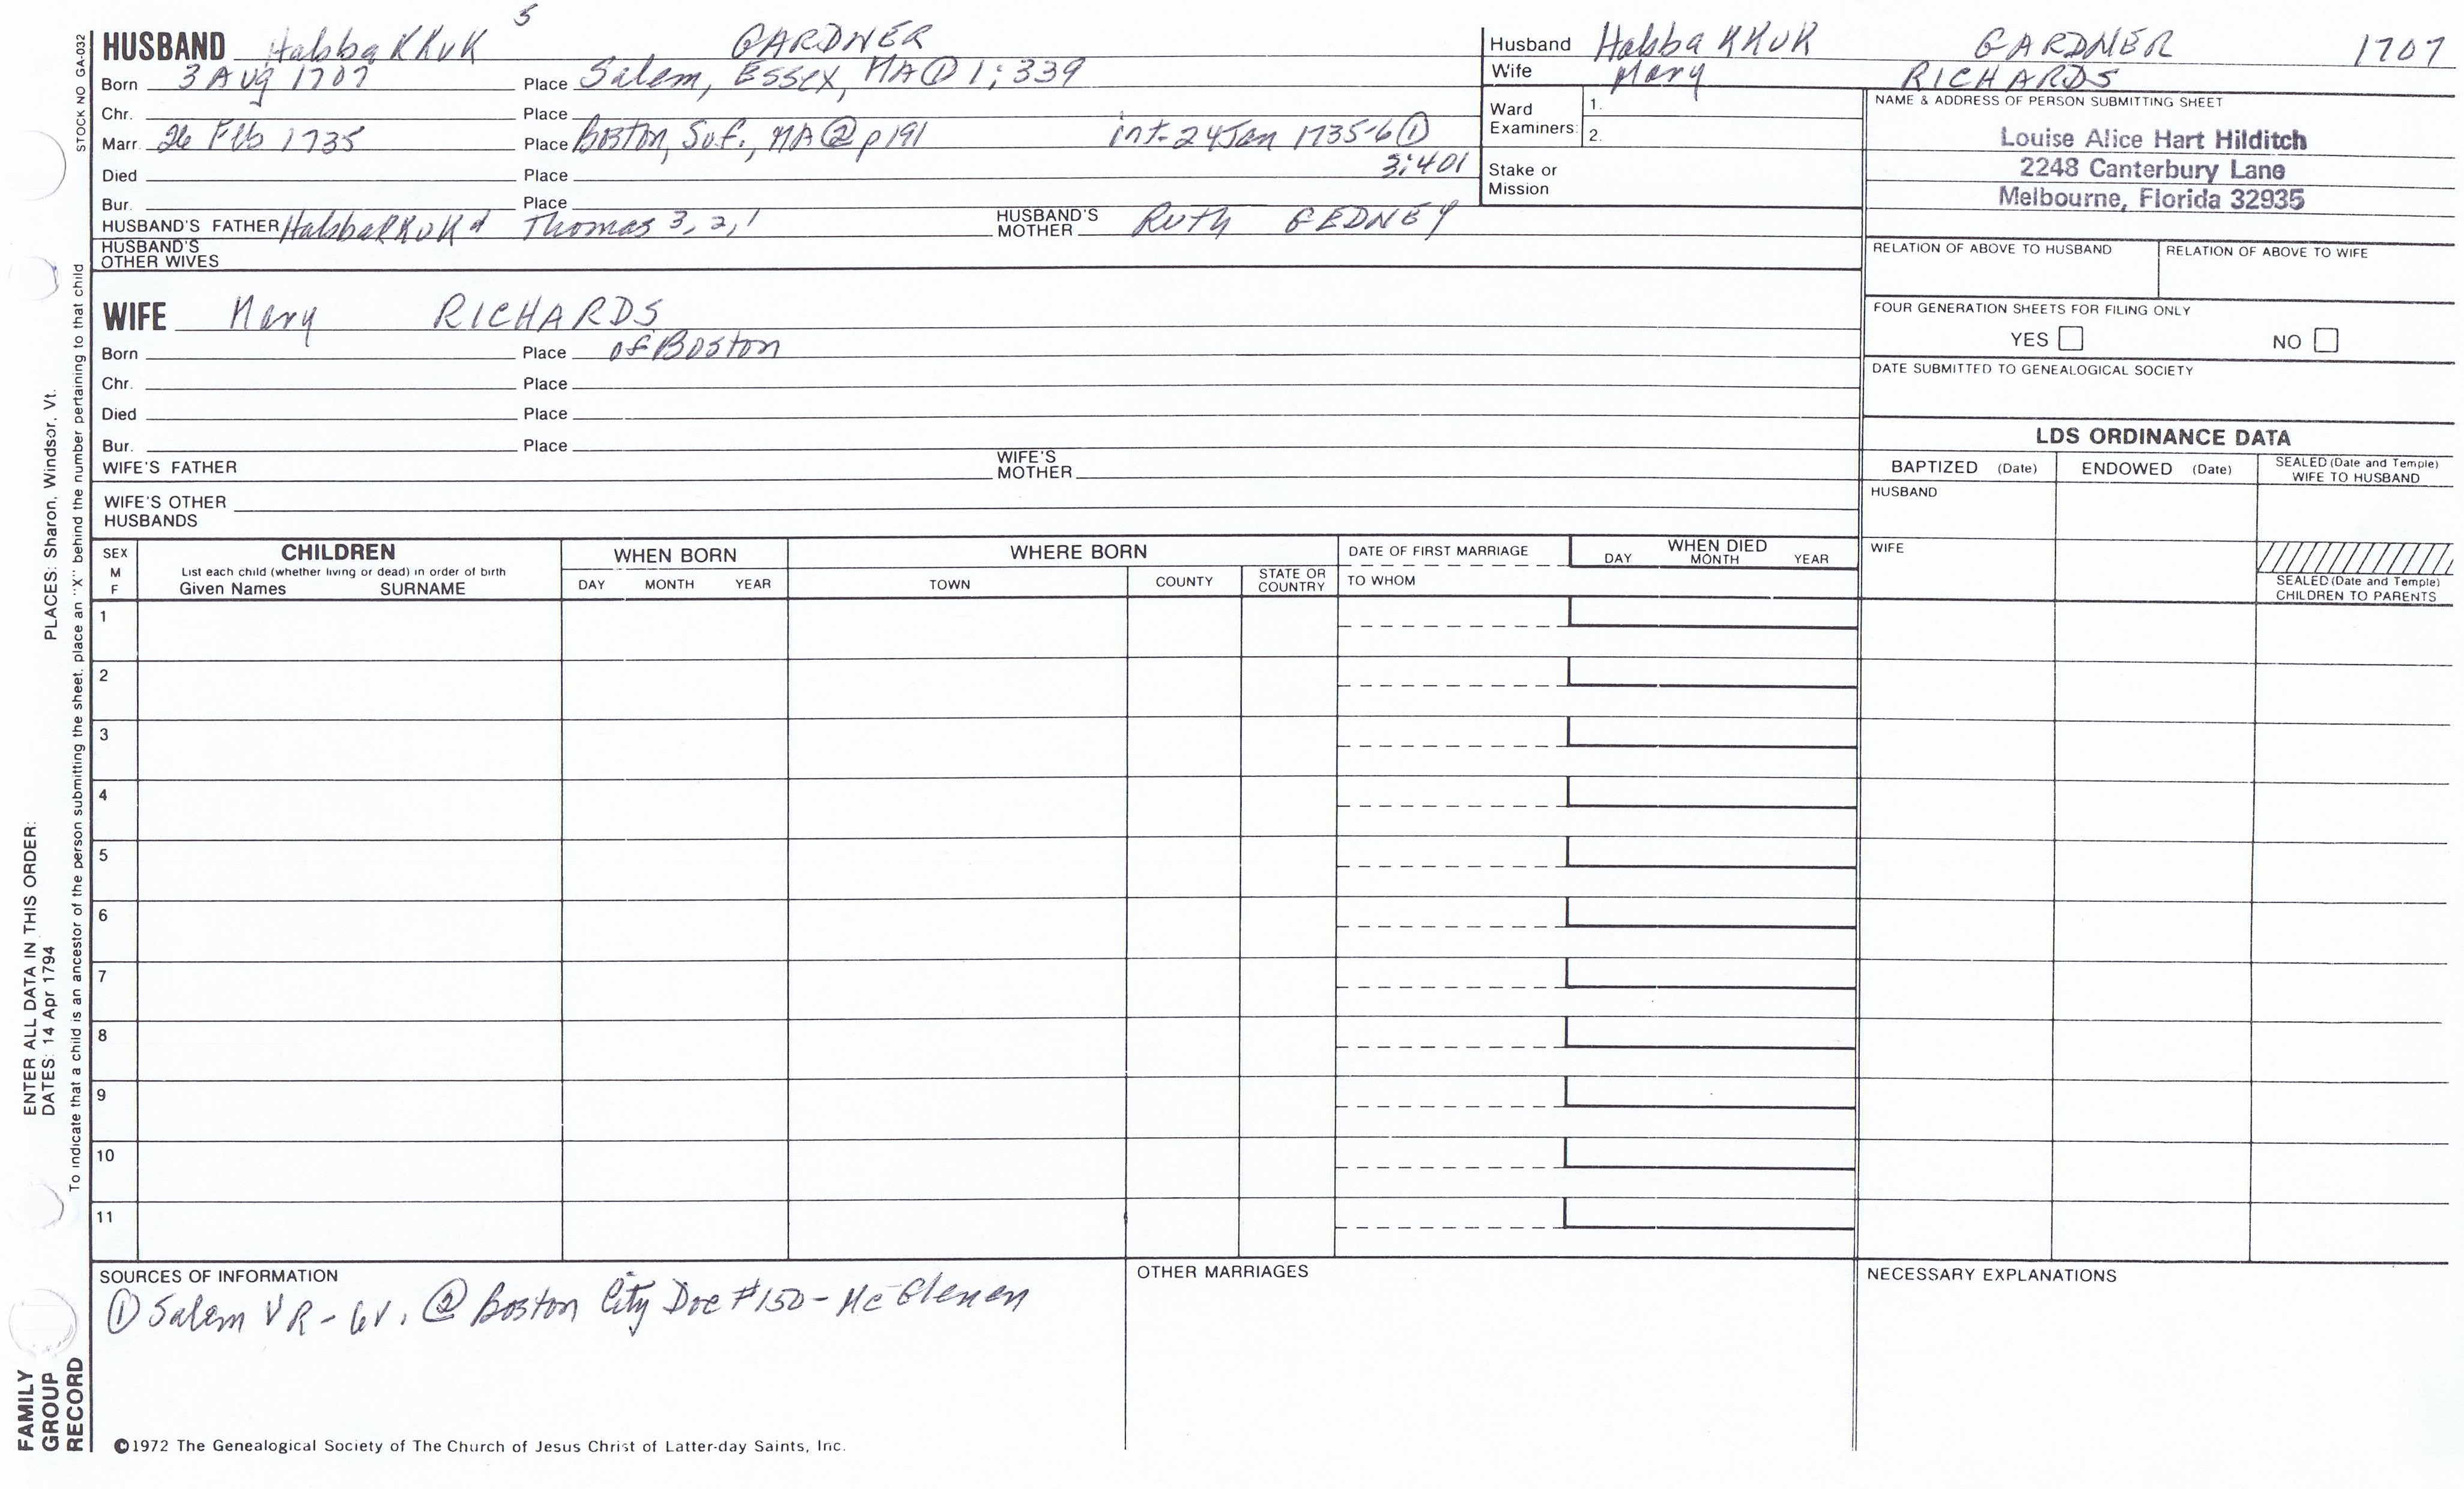 5
HUSBAND HabbaKKuK GARDNER
Born 3 Aug 1707 Place Salem, Essex, MA ① 1:339
Chr. Place
Marr. 26 Feb 1735 Place Boston, Suf., MA ② p191 int-24 Jan 1735-6 ①
3:401
Died Place
Bur. Place
HUSBAND'S FATHER HabbaKKuK 4 Thomas 3, 2, 1 HUSBAND'S MOTHER Ruth GEDNEY
HUSBAND'S OTHER WIVES
Husband HabbaKKuK GARDNER 1707
Wife Mary RICHARDS
Ward Examiners: 1.
2.
Stake or Mission
NAME & ADDRESS OF PERSON SUBMITTING SHEET
Louise Alice Hart Hilditch
2248 Canterbury Lane
Melbourne, Florida 32935
RELATION OF ABOVE TO HUSBAND RELATION OF ABOVE TO WIFE
FOUR GENERATION SHEETS FOR FILING ONLY
YES NO
DATE SUBMITTED TO GENEALOGICAL SOCIETY
WIFE Mary RICHARDS
Born Place of Boston
Chr. Place
Died Place
Bur. Place
WIFE'S FATHER WIFE'S MOTHER
WIFE'S OTHER HUSBANDS
LDS ORDINANCE DATA
BAPTIZED (Date) ENDOWED (Date) SEALED (Date and Temple) WIFE TO HUSBAND
HUSBAND
WIFE
SEALED (Date and Temple) CHILDREN TO PARENTS
SEX M F
CHILDREN
List each child (whether living or dead) in order of birth
Given Names SURNAME
WHEN BORN
DAY MONTH YEAR
WHERE BORN
TOWN COUNTY STATE OR COUNTRY
DATE OF FIRST MARRIAGE
TO WHOM
WHEN DIED
DAY MONTH YEAR
1
2
3
4
5
6
7
8
9
10
11
SOURCES OF INFORMATION
① Salem VR - 6V. ② Boston City Doc #150 - McGlenen
OTHER MARRIAGES
NECESSARY EXPLANATIONS
©1972 The Genealogical Society of The Church of Jesus Christ of Latter-day Saints, Inc.
STOCK NO GA-032
To indicate that a child is an ancestor of the person submitting the sheet, place an "X" behind the number pertaining to that child
ENTER ALL DATA IN THIS ORDER:
DATES: 14 Apr 1794 PLACES: Sharon, Windsor, Vt.
FAMILY
GROUP
RECORD